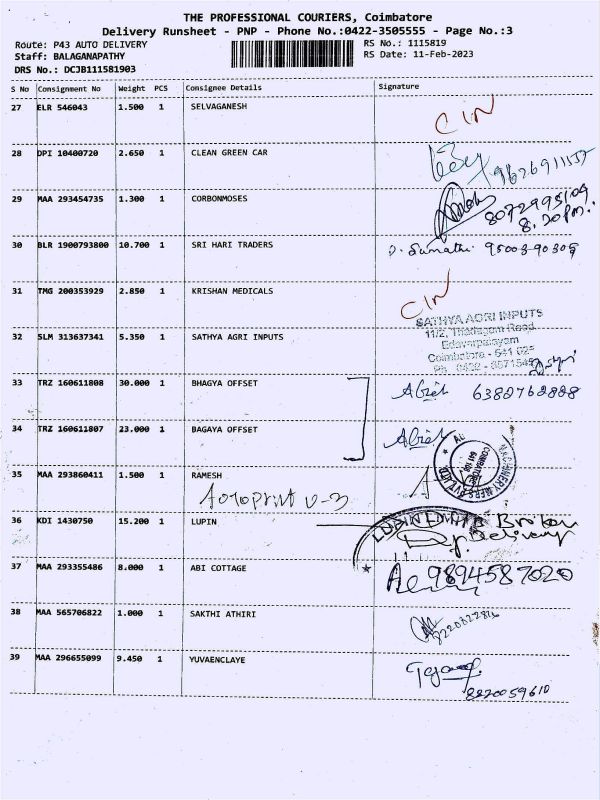 THE PROFESSIONAL COURIERS, Coimbatore
Delivery Runsheet - PNP - Phone No.:0422-3505555 - Page No.:3
Route: P43 AUTO DELIVERY
RS No.: 1115819
Staff: BALAGANAPATHY
RS Date: 11-Feb-2023
DRS No.: DCJB111581903
S No Consignment No Weight PCS Consignee Details Signature
27 ELR 546043 1.500 1 SELVAGANESH
C IN
28 DPI 10400720 2.650 1 CLEAN GREEN CAR
9626911157
29 MAA 293454735 1.300 1 CORBONMOSES
8072995109
8.20pm.
30 BLR 1900793800 10.700 1 SRI HARI TRADERS
D. Sumathi 9500390305
31 TMG 200353929 2.850 1 KRISHAN MEDICALS
C IN
32 SLM 313637341 5.350 1 SATHYA AGRI INPUTS
SATHYA AGRI INPUTS
11/2, Thadagam Road
Edayarpalayam
Coimbatore - 541 025
33 TRZ 160611808 30.000 1 BHAGYA OFFSET
6380762888
34 TRZ 160611807 23.000 1 BAGAYA OFFSET
35 MAA 293860411 1.500 1 RAMESH
COIMBATORE
MACHINERY MFRS PVT. LTD.
36 KDI 1430750 15.200 1 LUPIN
Broken
Delivery
37 MAA 293355486 8.000 1 ABI COTTAGE
9894587020
38 MAA 565706822 1.000 1 SAKTHI ATHIRI
39 MAA 296655099 9.450 1 YUVAENCLAYE
8220059610